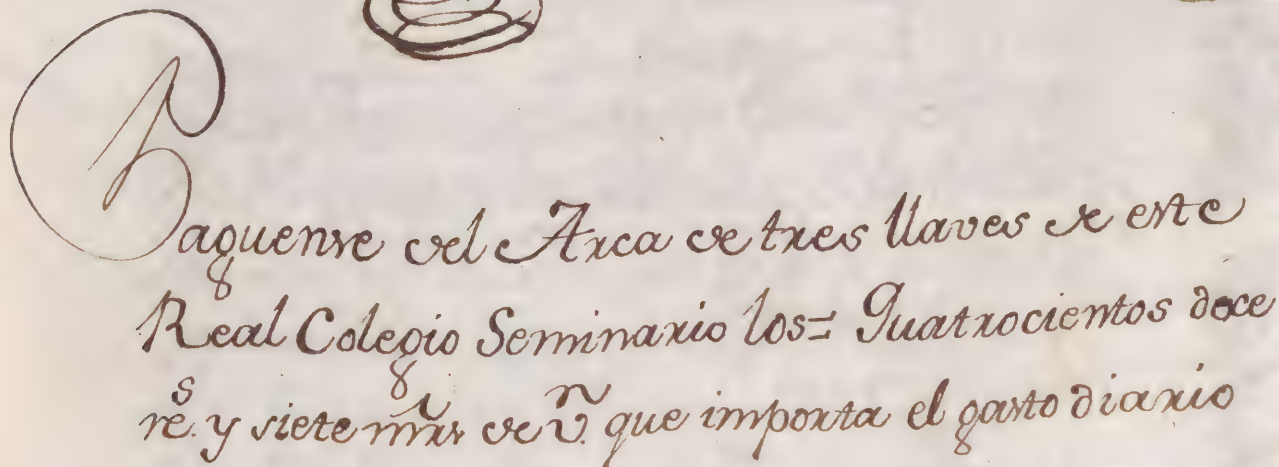 Paguense del Arca de tres llaves de este
Real Colegio Seminario los= Quatrocientos doce
rs. y siete mrs de vn. que importa el gasto diario